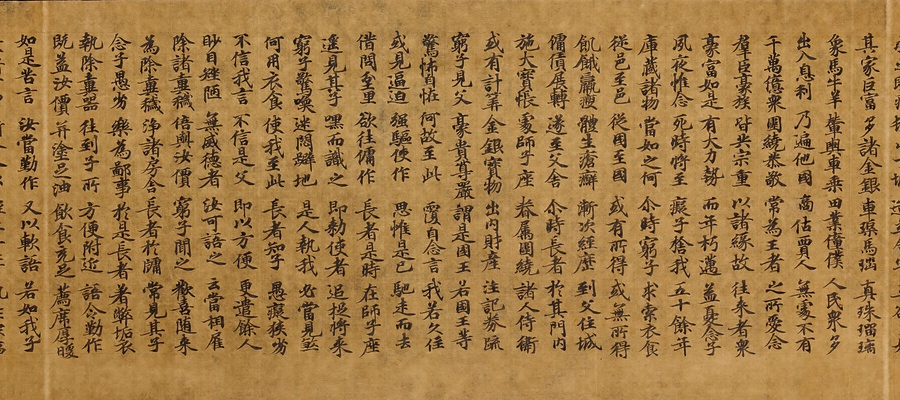 其家巨富 多諸金銀 車璩馬瑙 真珠瑠璃
象馬牛羊 輦輿車乘 田業僮僕 人民衆多
出入息利 乃遍他國 商估賈人 無處不有
千萬億衆 圍繞恭敬 常為王者 之所愛念
羣臣豪族 皆共宗重 以諸緣故 往來者衆
豪富如是 有大力勢 而年朽邁 益憂念子
夙夜惟念 死時將至 癡子捨我 五十餘年
庫藏諸物 當如之何 尒時窮子 求索衣食
從邑至邑 從國至國 或有所得 或無所得
飢餓羸瘦 體生瘡癬 漸次經歷 到父住城
傭賃展轉 遂至父舍 尒時長者 於其門內
施大寶帳 處師子座 眷屬圍繞 諸人侍衛
或有計筭 金銀寶物 出內財產 注記券疏
窮子見父 豪貴尊嚴 謂是國王 若國王等
驚怖自怪 何故至此 覆自念言 我若久住
或見逼迫 強驅使作 思惟是已 馳走而去
借問至里 欲往傭作 長者是時 在師子座
遙見其子 嘿而識之 即勑使者 追捉將來
窮子驚喚 迷悶躃地 是人執我 必當見
何用衣食 使我至此 長者知子 愚癡狹劣
不信我言 不信是父 即以方便 更遣餘人
眇目矬陋 無威德者 汝可語之 云當相雇
除諸糞穢 倍與汝價 窮子聞之 歡喜隨來
為除糞穢 淨諸房舍 長者於牖 常見其子
念子愚劣 樂為鄙事 於是長者 著弊垢衣
執除糞器 往到子所 方便附近 語令勤作
既益汝價 并塗足油 飲食充足 薦席厚暖
如是苦言 汝當勤作 又以軟語 若如我子